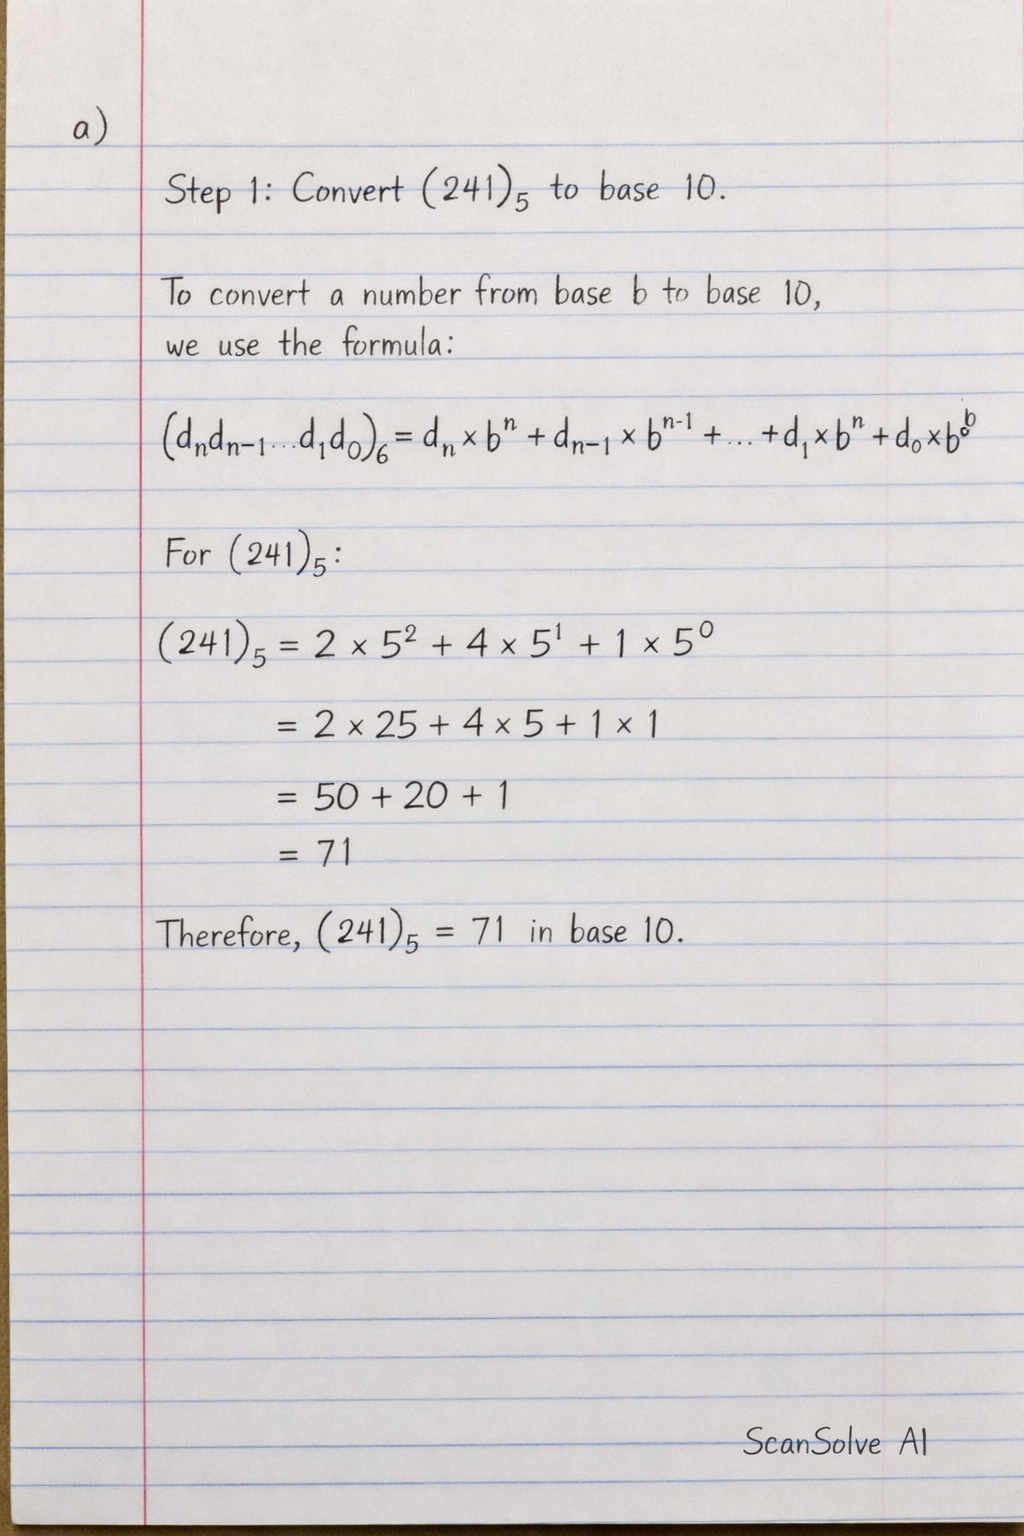 a)
Step 1: Convert (241)₅ to base 10.
To convert a number from base b to base 10,
we use the formula:
(dₙdₙ₋₁...d₁d₀)₆ = dₙ × bⁿ + dₙ₋₁ × bⁿ⁻¹ + ... + d₁ × bⁿ + d₀ × b⁰ᵇ
For (241)₅:
(241)₅ = 2 × 5² + 4 × 5¹ + 1 × 5⁰
= 2 × 25 + 4 × 5 + 1 × 1
= 50 + 20 + 1
= 71
Therefore, (241)₅ = 71 in base 10.
ScanSolve AI